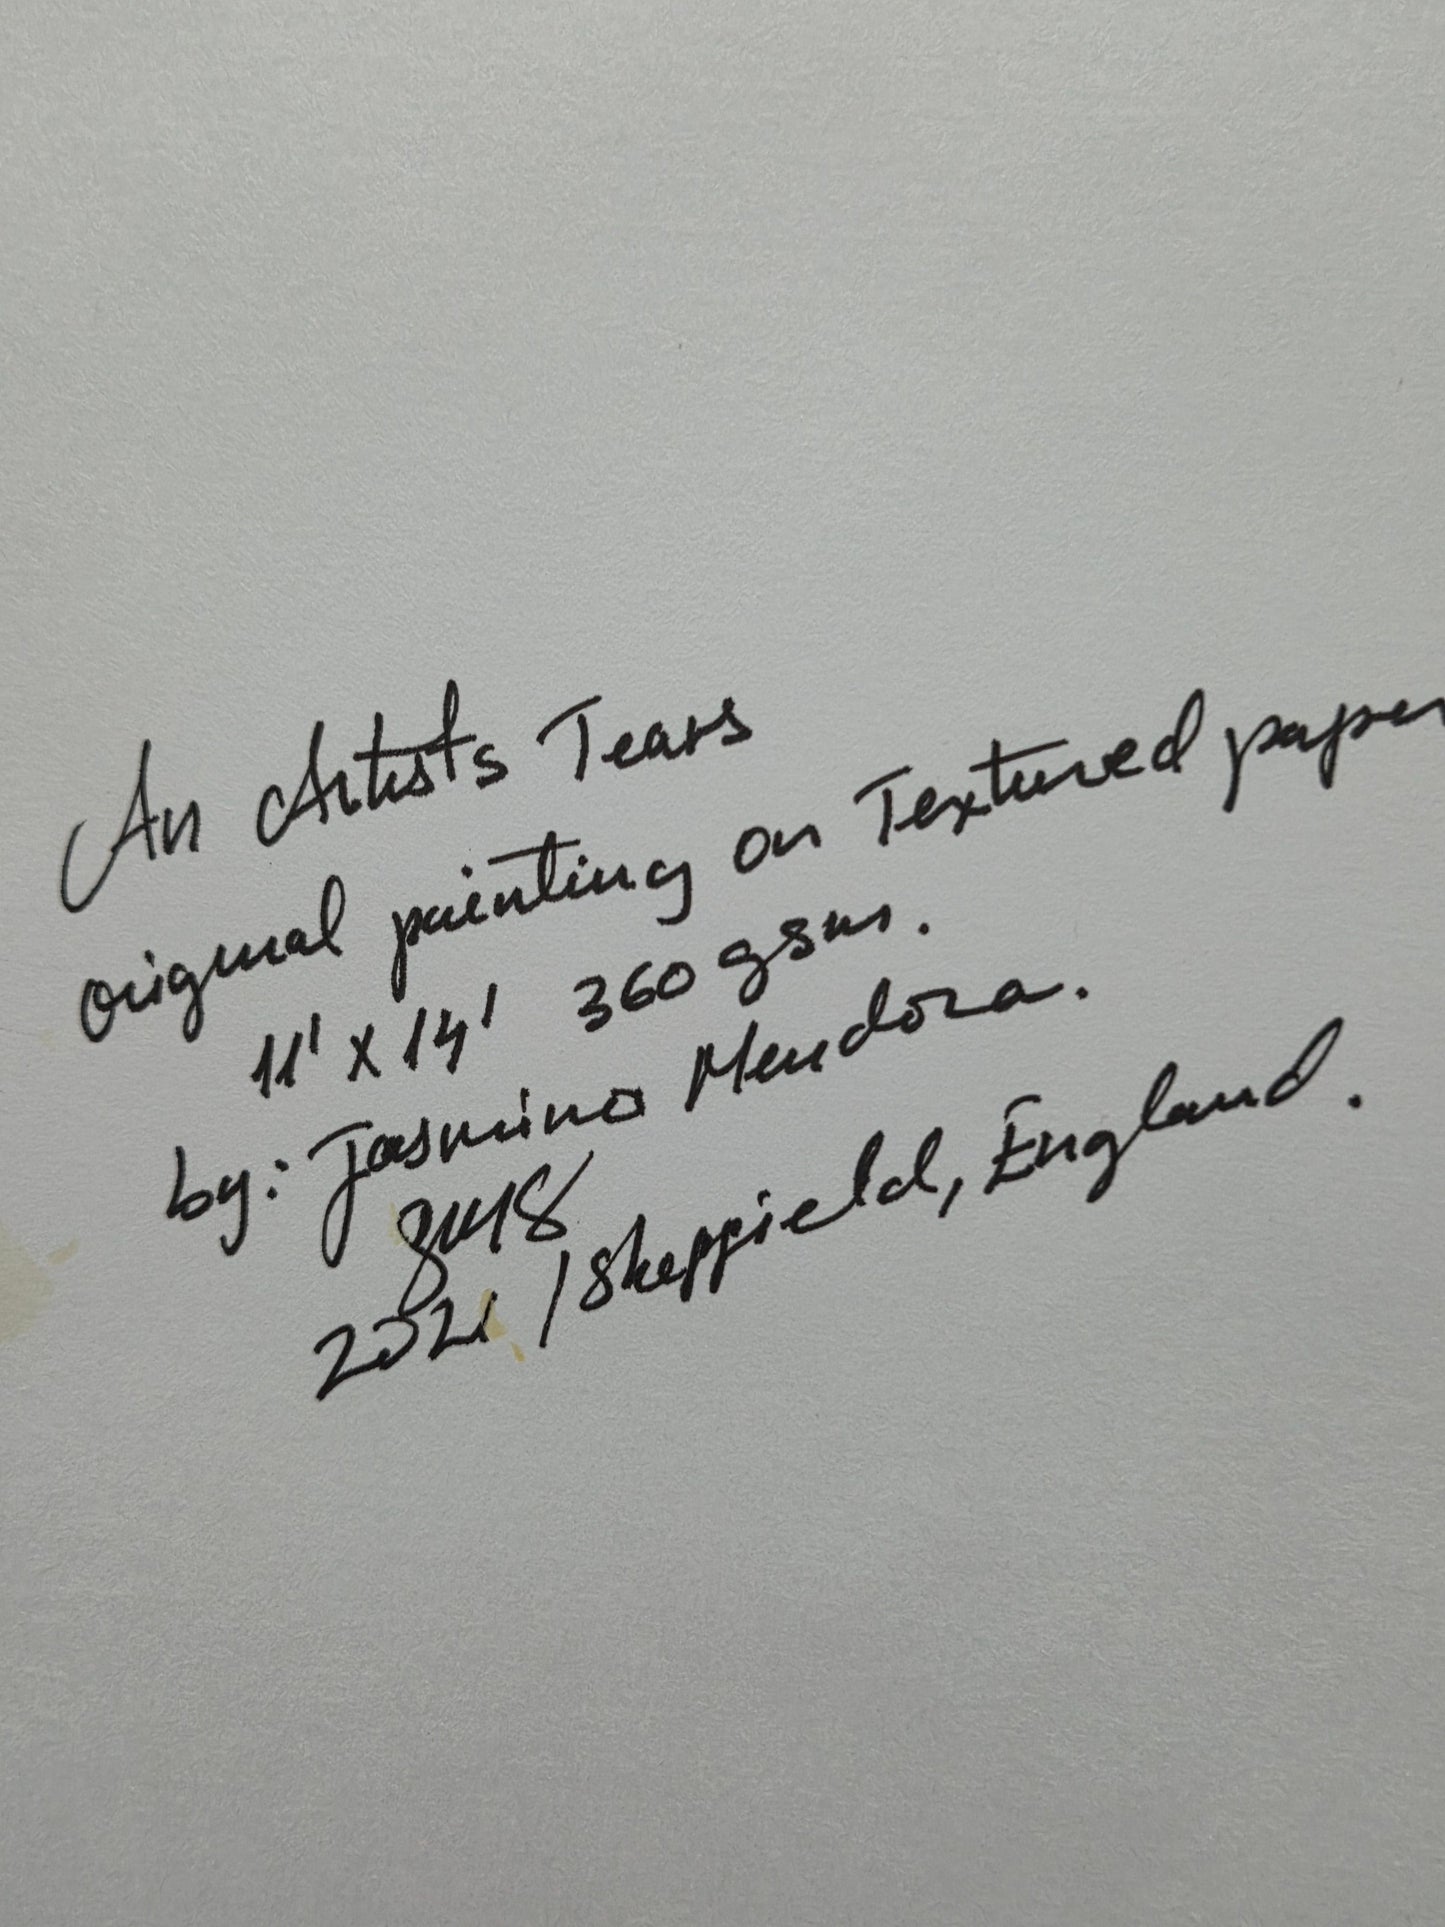 An Artists Tears
original painting on Textured paper
11' x 14' 360 gsm.
by: Jasmine Mendoza.
2021 / Sheffield, England.